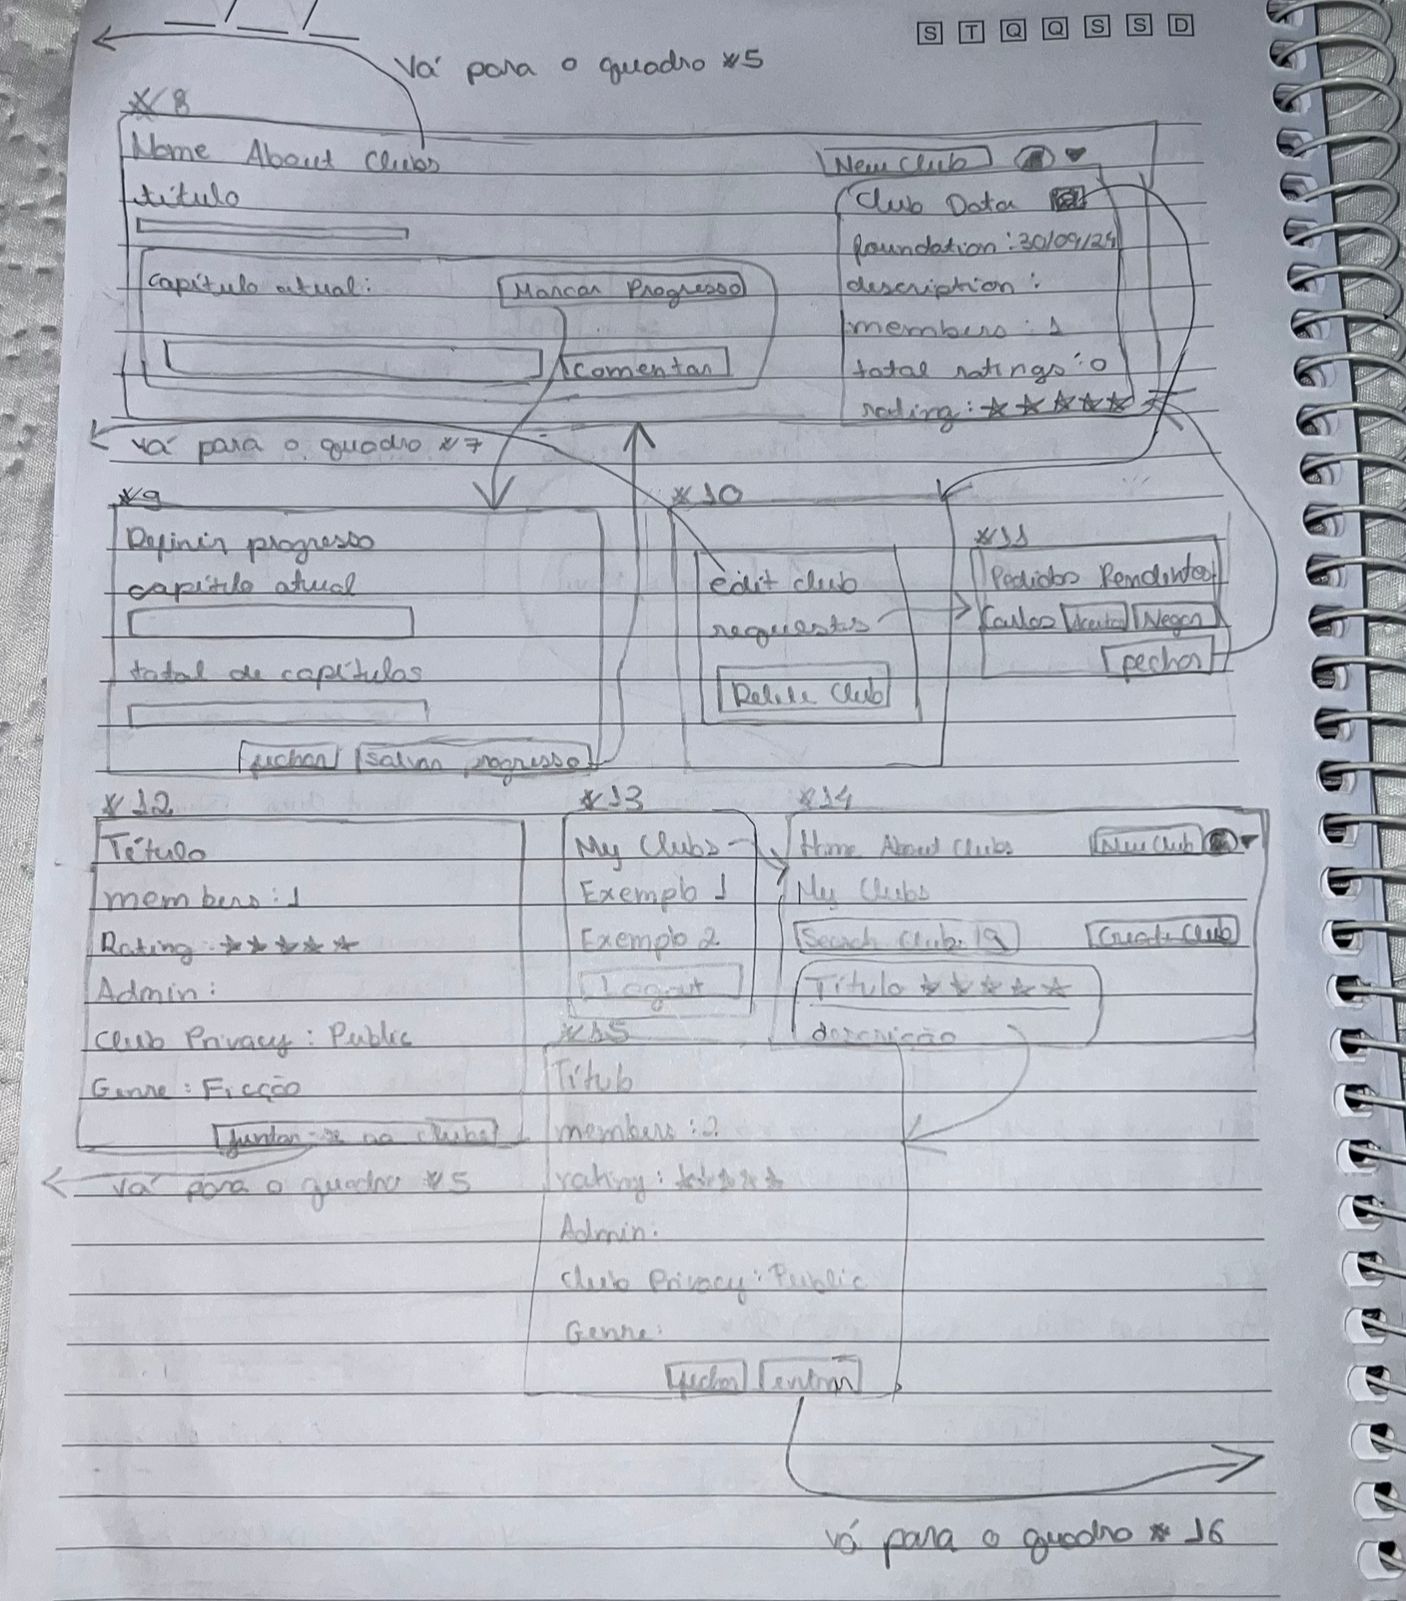 S T Q Q S S D
Vá para o quadro *5
*8
Home About Clubs New Club
título Club Data
foundation: 30/09/24
capítulo atual: Marcar Progresso description:
members: 1
Comentar total ratings: 0
rating: ★★★★★
vá para o quadro *7
*9
Definir progresso
capítulo atual
total de capítulos
fechar salvar progresso
*10
edit club
requests
Delete Club
*11
Pedidos Pendentes
Carlos Aceitar Negar
fechar
*12
Título
members: 1
Rating: ★★★★★
Admin:
Club Privacy: Public
Genre: Ficção
Juntar-se ao clube
vá para o quadro *5
*13
My Clubs
Exemplo 1
Exemplo 2
Logout
*14
Home About Clubs New Club
My Clubs
Search Club Create Club
Título ★★★★★
descrição
*15
Título
members: 2
rating: ★★★★★
Admin:
Club Privacy: Public
Genre:
fechar entrar
vá para o quadro *16